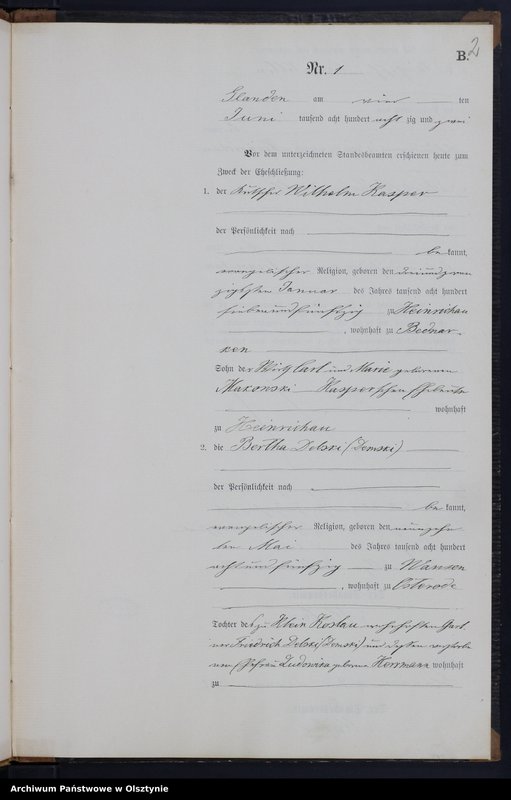 B. 2
Nr. 1
Glanden am vier ten
Juni tausend acht hundert acht zig und zwei
Vor dem unterzeichneten Standesbeamten erschienen heute zum
Zweck der Eheschließung:
1. der Kutscher Wilhelm Kasper
der Persönlichkeit nach
be kannt,
evangelischer Religion, geboren den dreiundzwan
zigsten Januar des Jahres tausend acht hundert
siebenundfünfzig zu Heinrichau
, wohnhaft zu Bednar-
ken
Sohn der Wirth Carl und Marie geborenen
Makonski Kasperschen Eheleute
wohnhaft
zu Heinrichau
2. die Bertha Dolski (Demski)
der Persönlichkeit nach
be kannt,
evangelischer Religion, geboren den neunzehn
ten Mai des Jahres tausend acht hundert
acht und fünfzig zu Wansen
, wohnhaft zu Osterode
Tochter des zu Klein Koslau wohnhaften
Friedrich Dolski (Demski) und dessen verstorbe
nen Ehefrau Ludowika geborene Herrmann wohnhaft
zu
Archiwum Państwowe w Olsztynie